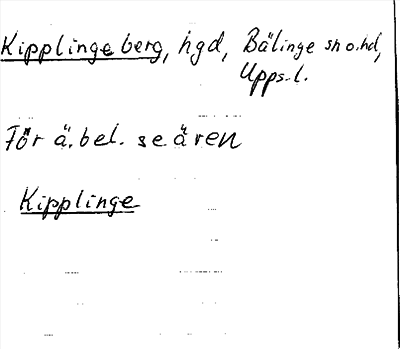 Kipplingeberg, hgd, Bälinge sn o. hd,
Upps. l.
För ä. bel. se ären
Kipplinge